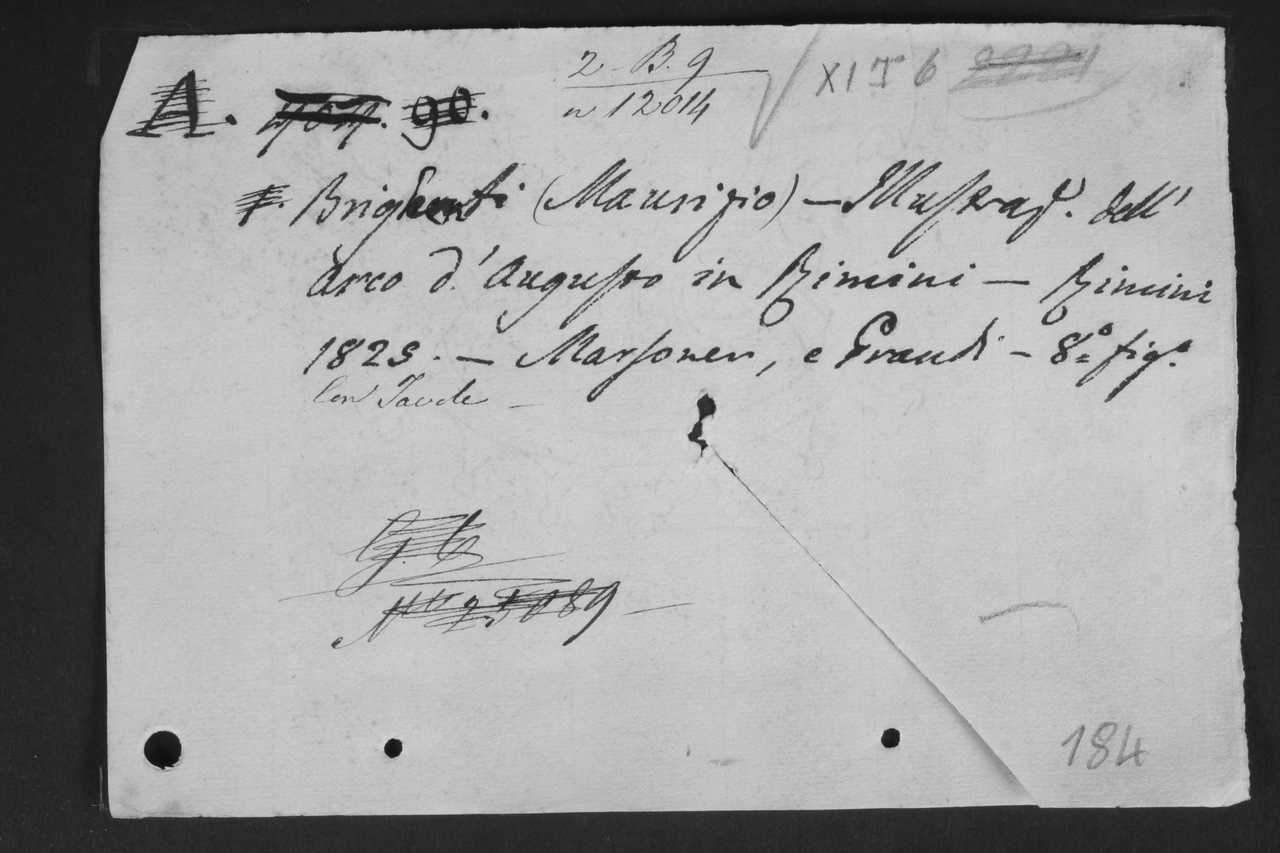 2. B. 9
n 12014
XI T 6
A. 90.
Brighenti (Maurizio) – Illustraz.e dell'
arco d'Augusto in Rimini – Rimini
1825. – Marsoner, e Grandi – 8.o fig.o
Con Tavole –
G. C
N.o 25089
184